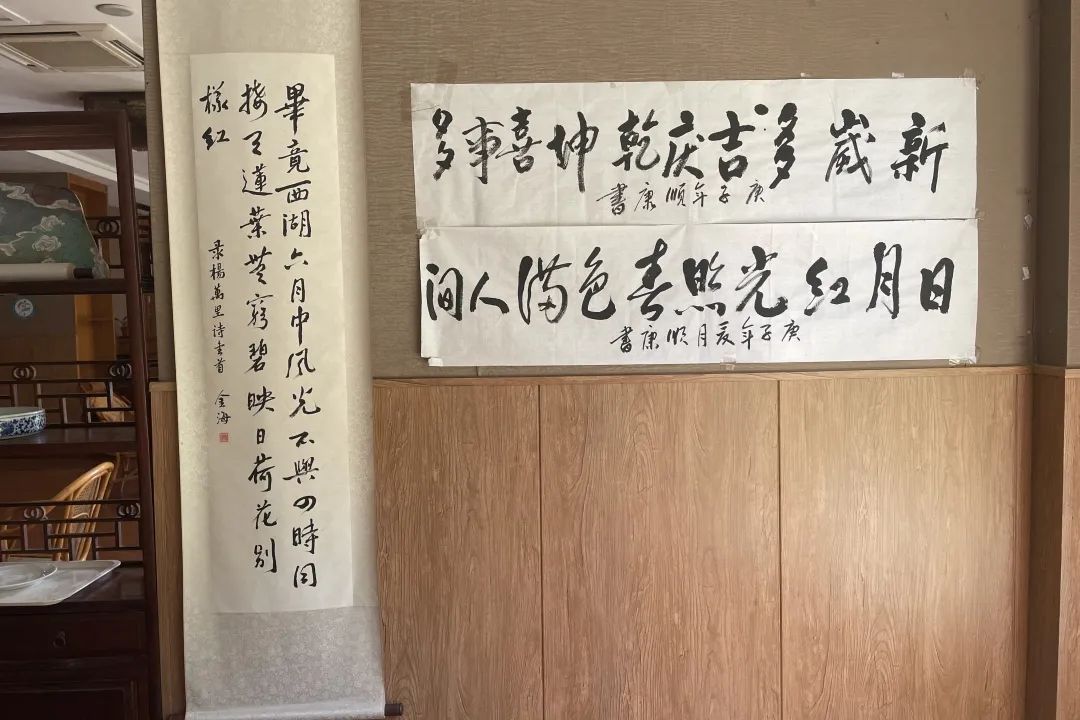 畢竟西湖六月中风光不與四時同
接天蓮葉無窮碧映日荷花别
樣红
录楊萬里诗壹首 金海
新歲多吉庆乾坤喜事多
庚子年顺康書
日月红光照春色满人间
庚子年夏月顺康書